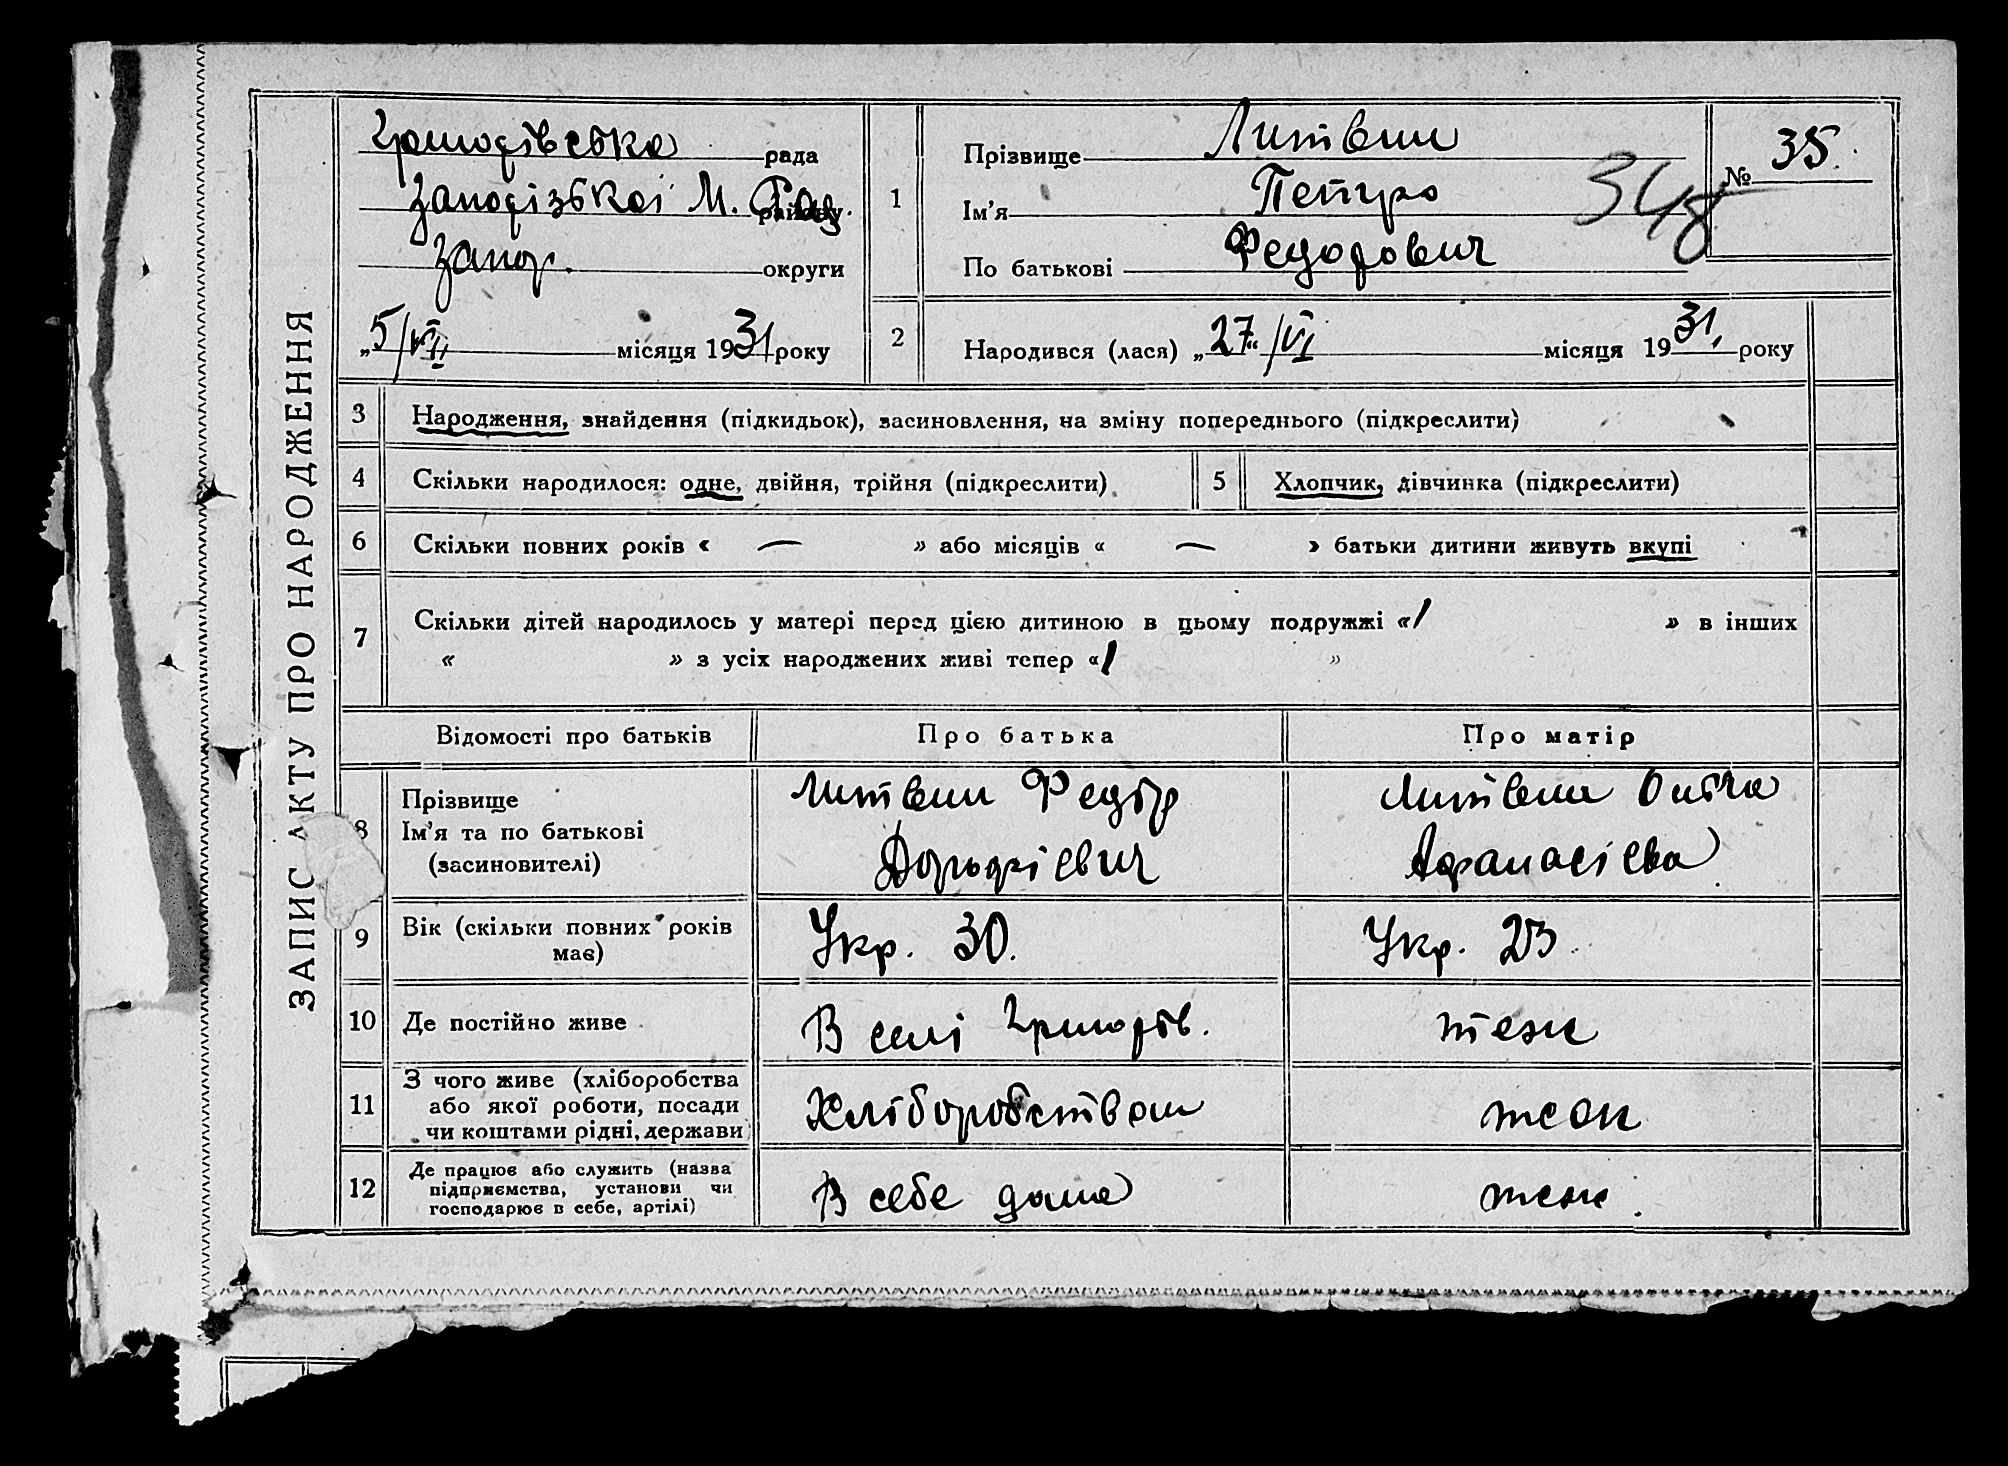 ЗАПИС АКТУ ПРО НАРОДЖЕННЯ
рада
Запорізької М. Рад. району
Запор. округи
„5/VII місяця 1931 року
1
Прізвище Литвин
Ім’я Петро
По батькові Федорович
№ 35
348
2
Народився (лася) „27“ /VI місяця 1931, року
3 Народження, знайдення (підкидьок), засиновлення, на зміну попереднього (підкреслити)
4 Скільки народилося: одне, двійня, трійня (підкреслити)
5 Хлопчик, дівчинка (підкреслити)
6 Скільки повних років « — » або місяців « — » батьки дитини живуть вкупі
7 Скільки дітей народилось у матері перед цією дитиною в цьому подружжі «1 » в інших
« » з усіх народжених живі тепер «1 »
Відомості про батьків Про батька Про матір
8 Прізвище
Ім’я та по батькові
(засиновителі)
Литвин Федір
Литвин
Афанасієва
9 Вік (скільки повних років
має)
Укр. 30.
Укр. 23
10 Де постійно живе
В селі
теж
11 З чого живе (хліборобства
або якої роботи, посади
чи коштами рідні, держави
Хліборобством
теж
12 Де працює або служить (назва
підприємства, установи чи
господарює в себе, артілі)
В себе дома
теж.